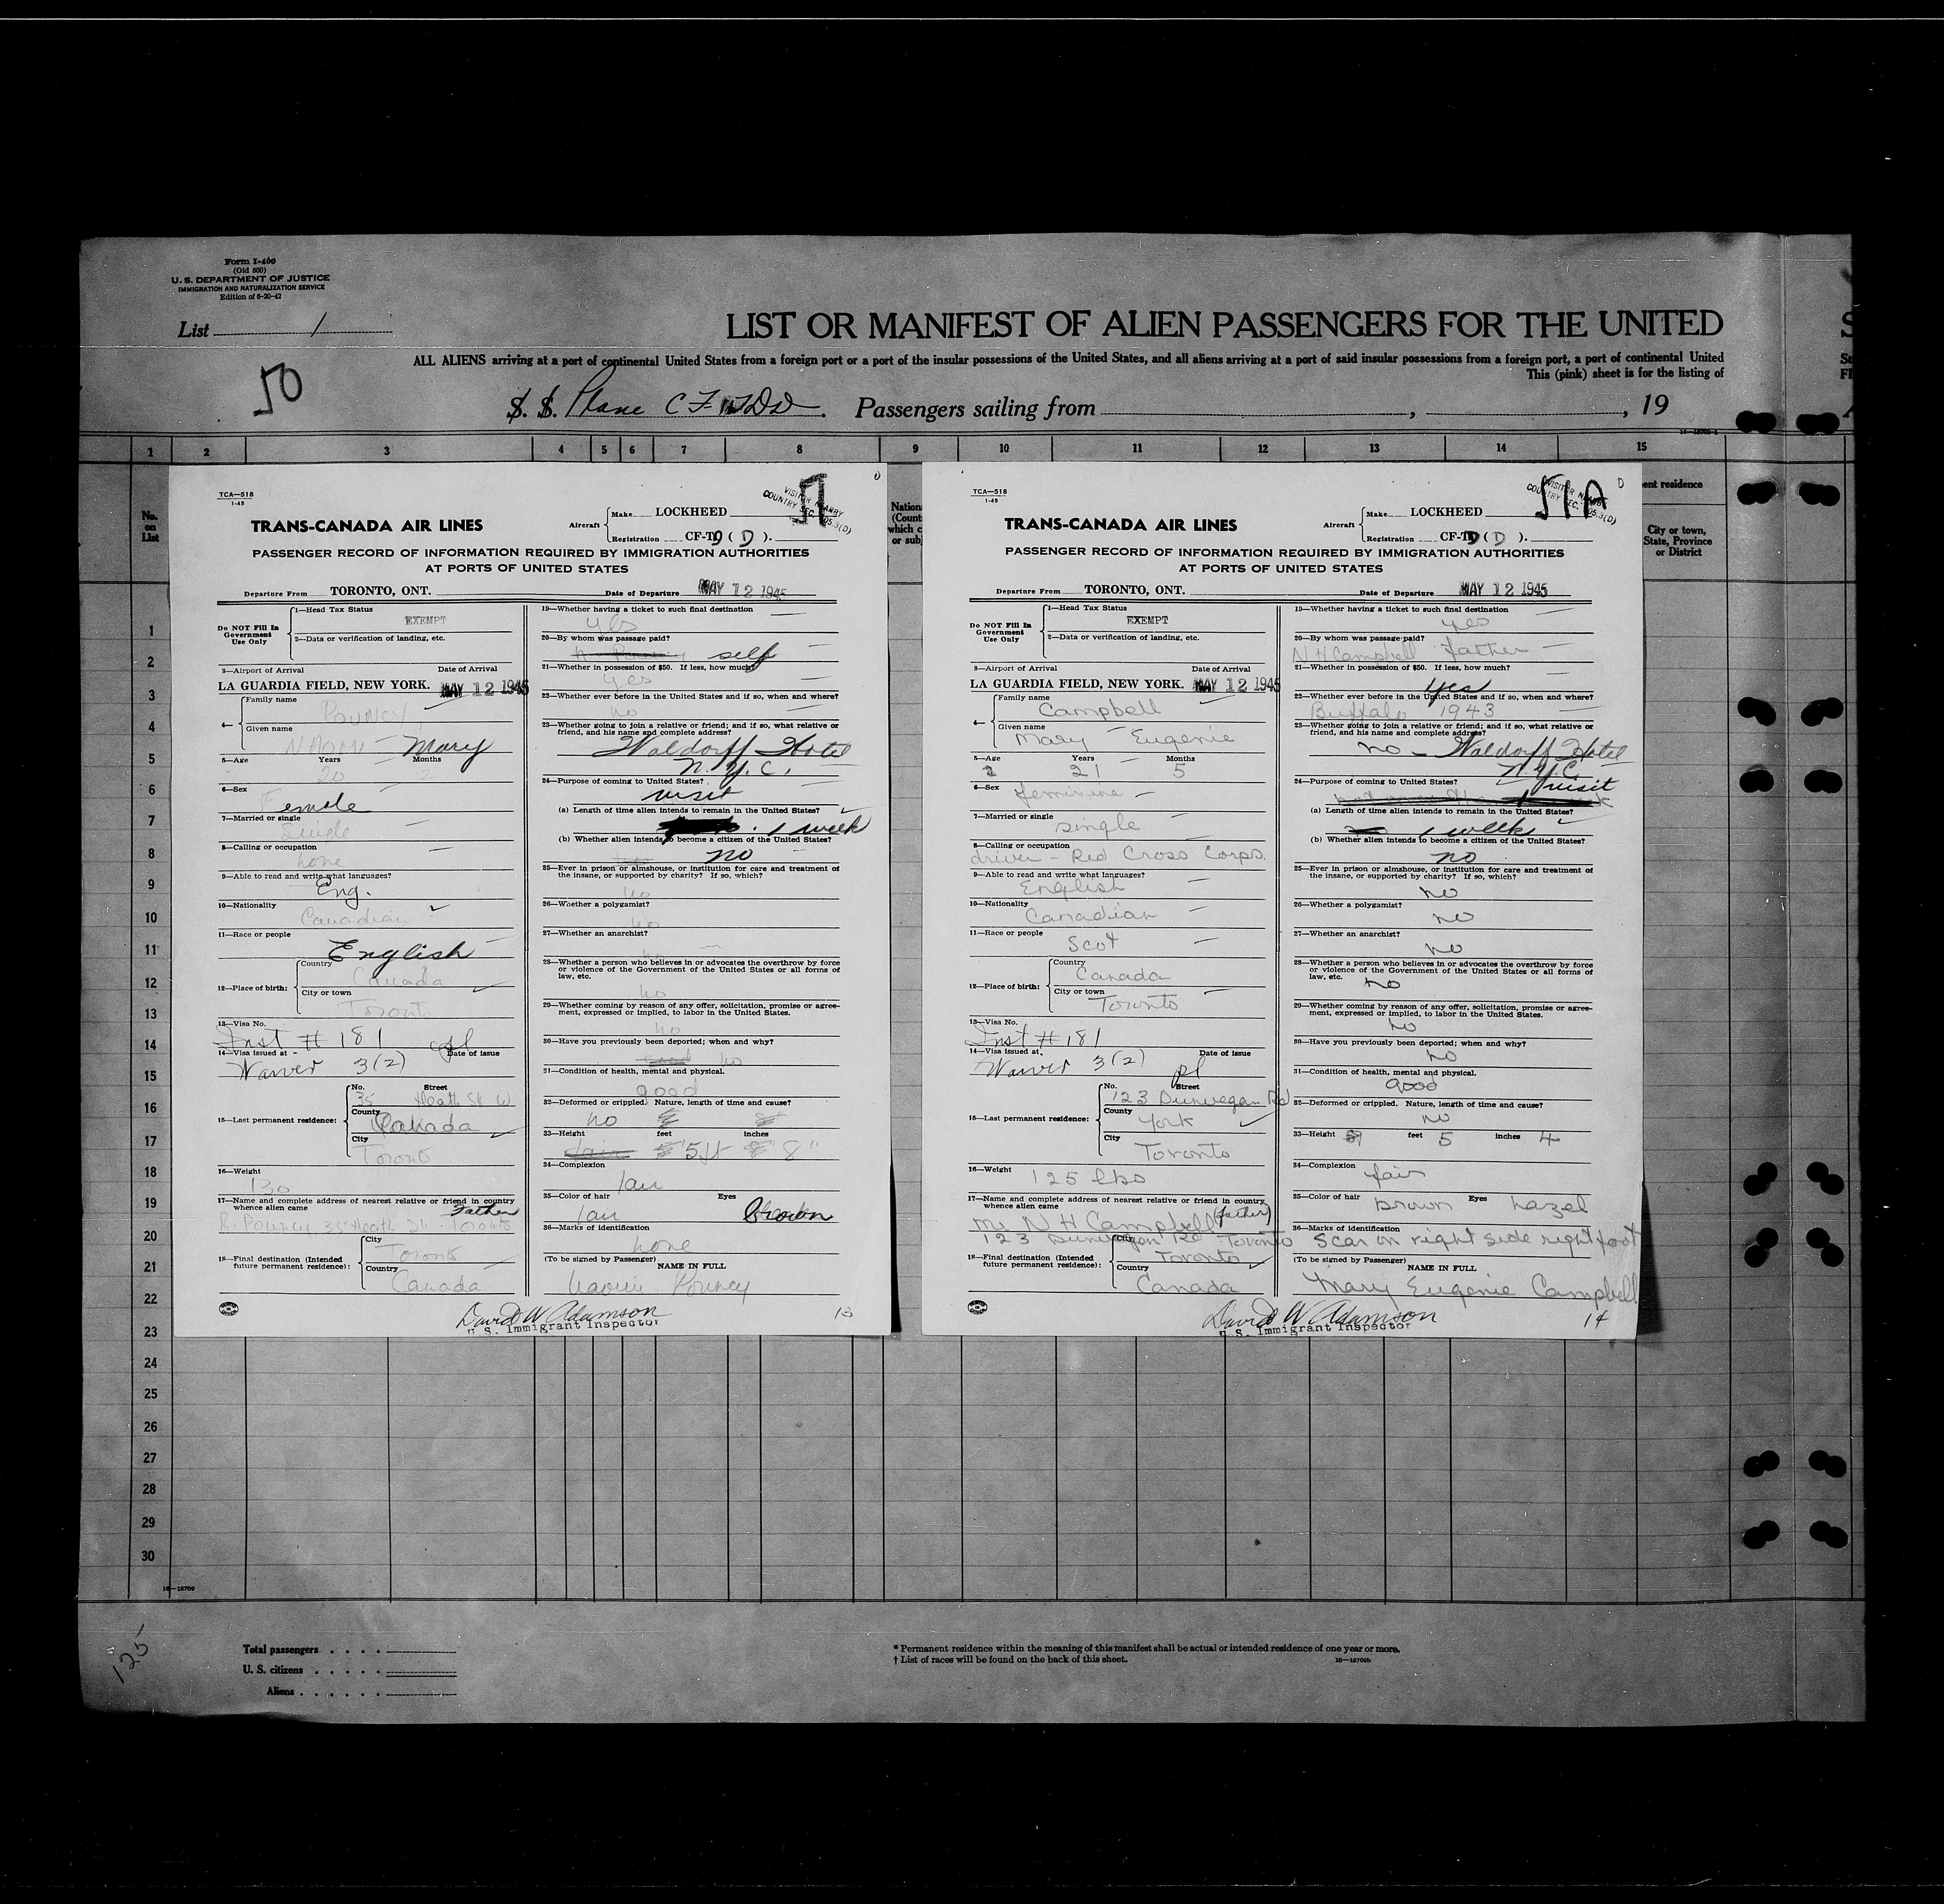 Form I-400
(Old 500)
U. S. DEPARTMENT OF JUSTICE
IMMIGRATION AND NATURALIZATION SERVICE
Edition of 6-20-42
List /
50
LIST OR MANIFEST OF ALIEN PASSENGERS FOR THE UNITED
ALL ALIENS arriving at a port of continental United States from a foreign port or a port of the insular possessions of the United States, and all aliens arriving at a port of said insular possessions from a foreign port, a port of continental United
This (pink) sheet is for the listing of
S. S. Plane CF TDD. Passengers sailing from , , 19
1 2 3 4 5 6 7 8 9 10 11 12 13 14 15
No. on List
ent residence
City or town, State, Province or District
TCA—518
1-45
TRANS-CANADA AIR LINES
Aircraft Make LOCKHEED
Registration CF-T ( D ).
PASSENGER RECORD OF INFORMATION REQUIRED BY IMMIGRATION AUTHORITIES
AT PORTS OF UNITED STATES
Departure From TORONTO, ONT. Date of Departure MAY 12 1945
Do NOT Fill In Government Use Only
1—Head Tax Status EXEMPT
2—Data or verification of landing, etc.
3—Airport of Arrival Date of Arrival
LA GUARDIA FIELD, NEW YORK. MAY 12 1945
4— Family name Pouncy
Given name Naomi — Mary
5—Age Years 20 Months
6—Sex Female
7—Married or single Single
8—Calling or occupation none
9—Able to read and write what languages? Eng.
10—Nationality Canadian
11—Race or people English
12—Place of birth: Country Canada
City or town Toronto
13—Visa No. Inst # 181
14—Visa issued at Date of issue
Waiver 3(2)
15—Last permanent residence: No. Street 35 Heath St W
County Canada
City Toronto
16—Weight 130
17—Name and complete address of nearest relative or friend in country whence alien came Father
R. Pouncy 35 Heath St. Toronto
18—Final destination (Intended future permanent residence): City Toronto
Country Canada
19—Whether having a ticket to such final destination yes
20—By whom was passage paid? self
21—Whether in possession of $50. If less, how much? yes
22—Whether ever before in the United States and if so, when and where? no
23—Whether going to join a relative or friend; and if so, what relative or friend, and his name and complete address?
Waldorff Hotel
N.Y.C.
24—Purpose of coming to United States? visit
(a) Length of time alien intends to remain in the United States? 1 week
(b) Whether alien intends to become a citizen of the United States? no
25—Ever in prison or almshouse, or institution for care and treatment of the insane, or supported by charity? If so, which? no
26—Whether a polygamist? no
27—Whether an anarchist? no
28—Whether a person who believes in or advocates the overthrow by force or violence of the Government of the United States or all forms of law, etc. no
29—Whether coming by reason of any offer, solicitation, promise or agreement, expressed or implied, to labor in the United States. no
30—Have you previously been deported; when and why? no
31—Condition of health, mental and physical. good
32—Deformed or crippled. Nature, length of time and cause? no
33—Height feet inches 5ft 8"
34—Complexion fair
35—Color of hair fair Eyes Brown
36—Marks of identification none
(To be signed by Passenger) NAME IN FULL
Naomi Pouncy
David W Adamson
U.S. Immigrant Inspector
13
TCA—518
1-45
51A
TRANS-CANADA AIR LINES
Aircraft Make LOCKHEED
Registration CF-T ( D ).
PASSENGER RECORD OF INFORMATION REQUIRED BY IMMIGRATION AUTHORITIES
AT PORTS OF UNITED STATES
Departure From TORONTO, ONT. Date of Departure MAY 12 1945
Do NOT Fill In Government Use Only
1—Head Tax Status EXEMPT
2—Data or verification of landing, etc.
3—Airport of Arrival Date of Arrival
LA GUARDIA FIELD, NEW YORK. MAY 12 1945
4— Family name Campbell
Given name Mary Eugenie
5—Age Years 21 Months 5
6—Sex feminine
7—Married or single single
8—Calling or occupation driver - Red Cross Corps.
9—Able to read and write what languages? English
10—Nationality Canadian
11—Race or people Scot
12—Place of birth: Country Canada
City or town Toronto
13—Visa No. Inst # 181
14—Visa issued at. Date of issue
Waiver 3(2)
15—Last permanent residence: No. Street 123 Dunvegan Rd
County York
City Toronto
16—Weight 125 lbs
17—Name and complete address of nearest relative or friend in country whence alien came
Mr N H Campbell (father)
123 Dunvegan Rd Toronto
18—Final destination (Intended future permanent residence): City Toronto
Country Canada
19—Whether having a ticket to such final destination yes
20—By whom was passage paid? N H Campbell father
21—Whether in possession of $50. If less, how much? yes
22—Whether ever before in the United States and if so, when and where? Buffalo 1943
23—Whether going to join a relative or friend; and if so, what relative or friend, and his name and complete address?
no - Waldorff Hotel
N.Y.C.
24—Purpose of coming to United States? visit
(a) Length of time alien intends to remain in the United States? 1 week
(b) Whether alien intends to become a citizen of the United States? no
25—Ever in prison or almshouse, or institution for care and treatment of the insane, or supported by charity? If so, which? no
26—Whether a polygamist? no
27—Whether an anarchist? no
28—Whether a person who believes in or advocates the overthrow by force or violence of the Government of the United States or all forms of law, etc. no
29—Whether coming by reason of any offer, solicitation, promise or agreement, expressed or implied, to labor in the United States. no
30—Have you previously been deported; when and why? no
31—Condition of health, mental and physical. good
32—Deformed or crippled. Nature, length of time and cause? no
33—Height feet 5 inches 4
34—Complexion fair
35—Color of hair Brown Eyes hazel
36—Marks of identification Scar on right side right foot
(To be signed by Passenger) NAME IN FULL
Mary Eugenie Campbell
David W Adamson
U.S. Immigrant Inspector
14
1
2
3
4
5
6
7
8
9
10
11
12
13
14
15
16
17
18
19
20
21
22
23
24
25
26
27
28
29
30
16—18709
125
Total passengers
U. S. citizens
Aliens
* Permanent residence within the meaning of this manifest shall be actual or intended residence of one year or more.
† List of races will be found on the back of this sheet.